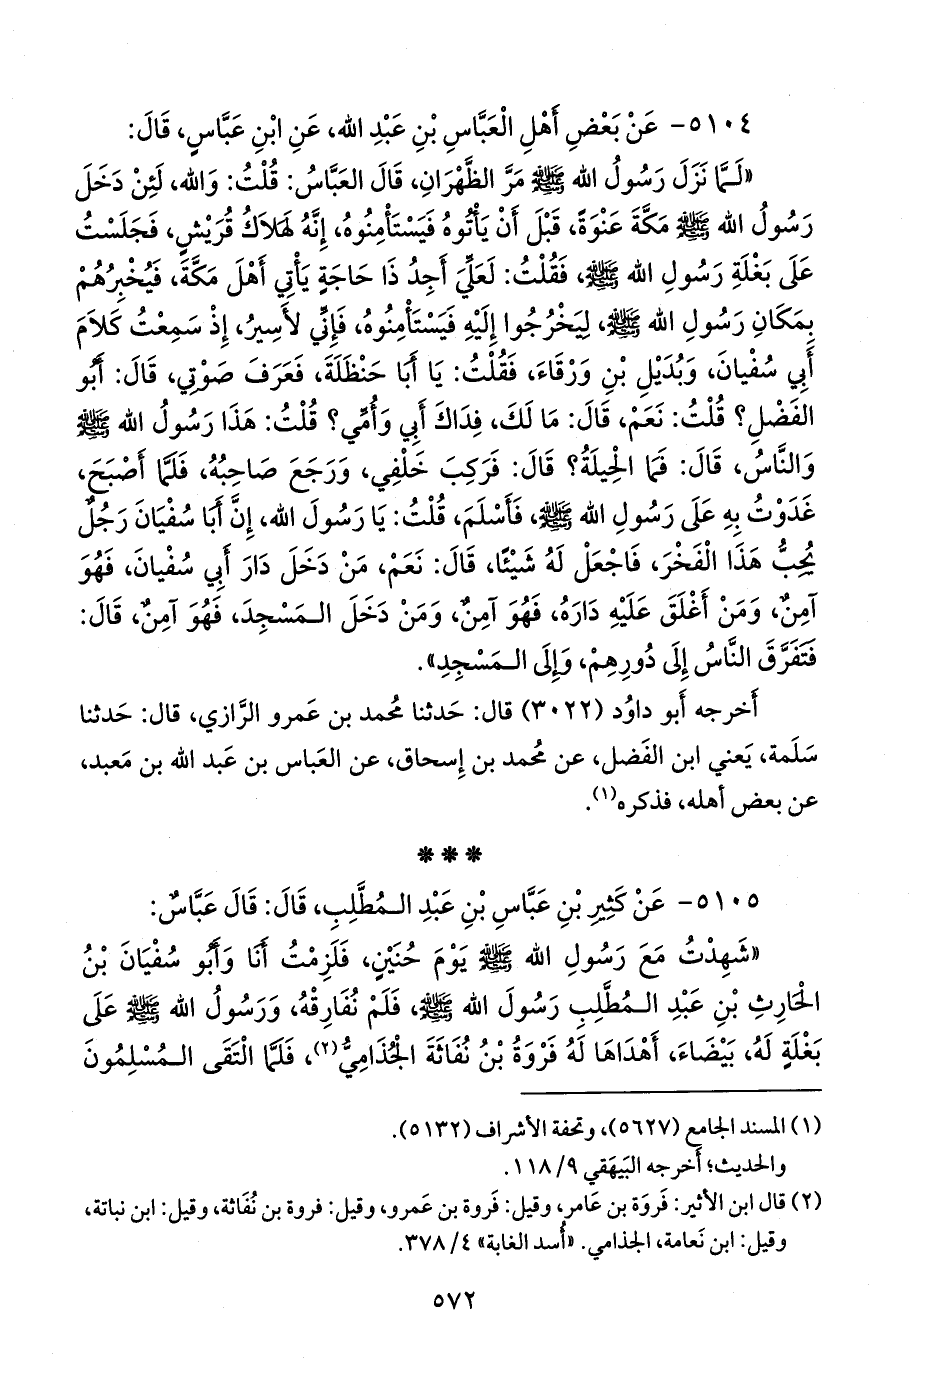 ٥١٠٤- عَنْ بَعْضِ أَهْلِ الْعَبَّاسِ بْنِ عَبْدِ الله، عَنِ ابْنِ عَبَّاسٍ، قَالَ:
«لَـمَّا نَزَلَ رَسُولُ الله ﷺ مَرَّ الظَّهْرَانِ، قَالَ العَبَّاسُ: قُلْتُ: وَالله، لَئِنْ دَخَلَ
رَسُولُ الله ﷺ مَكَّةَ عَنْوَةً، قَبْلَ أَنْ يَأْتُوهُ فَيَسْتَأْمِنُوهُ، إِنَّهُ لَهَلَاكُ قُرَيْشٍ، فَجَلَسْتُ
عَلَى بَغْلَةِ رَسُولِ الله ﷺ، فَقُلْتُ: لَعَلِّي أَجِدُ ذَا حَاجَةٍ يَأْتِي أَهْلَ مَكَّةَ، فَيُخْبِرُهُمْ
بِمَكَانِ رَسُولِ الله ﷺ، لِيَخْرُجُوا إِلَيْهِ فَيَسْتَأْمِنُوهُ، فَإِنِّي لأَسِيرُ، إِذْ سَمِعْتُ كَلَامَ
أَبِي سُفْيَانَ، وَبُدَيْلِ بْنِ وَرْقَاءَ، فَقُلْتُ: يَا أَبَا حَنْظَلَةَ، فَعَرَفَ صَوْتِي، قَالَ: أَبُو
الفَضْلِ؟ قُلْتُ: نَعَمْ، قَالَ: مَا لَكَ، فِدَاكَ أَبِي وَأُمِّي؟ قُلْتُ: هَذَا رَسُولُ الله ﷺ
وَالنَّاسُ، قَالَ: فَمَا الْحِيلَةُ؟ قَالَ: فَرَكِبَ خَلْفِي، وَرَجَعَ صَاحِبُهُ، فَلَمَّا أَصْبَحَ،
غَدَوْتُ بِهِ عَلَى رَسُولِ الله ﷺ، فَأَسْلَمَ، قُلْتُ: يَا رَسُولَ الله، إِنَّ أَبَا سُفْيَانَ رَجُلٌ
يُحِبُّ هَذَا الْفَخْرَ، فَاجْعَلْ لَهُ شَيْئًا، قَالَ: نَعَمْ، مَنْ دَخَلَ دَارَ أَبِي سُفْيَانَ، فَهُوَ
آمِنٌ، وَمَنْ أَغْلَقَ عَلَيْهِ دَارَهُ، فَهُوَ آمِنٌ، وَمَنْ دَخَلَ الـمَسْجِدَ، فَهُوَ آمِنٌ، قَالَ:
فَتَفَرَّقَ النَّاسُ إِلَى دُورِهِمْ، وَإِلَى الـمَسْجِدِ».
أَخرجه أَبو داوُد (٣٠٢٢) قال: حَدثنا مُحمد بن عَمرو الرَّازي، قال: حَدثنا
سَلَمة، يَعني ابن الفَضل، عن مُحمد بن إِسحاق، عن العَباس بن عَبد الله بن مَعبد،
عن بعض أهله، فذكره(١).
***
٥١٠٥- عَنْ كَثِيرِ بْنِ عَبَّاسِ بْنِ عَبْدِ الـمُطَّلِبِ، قَالَ: قَالَ عَبَّاسٌ:
«شَهِدْتُ مَعَ رَسُولِ الله ﷺ يَوْمَ حُنَيْنٍ، فَلَزِمْتُ أَنَا وَأَبُو سُفْيَانَ بْنُ
الْحَارِثِ بْنِ عَبْدِ الـمُطَّلِبِ رَسُولَ الله ﷺ، فَلَمْ نُفَارِقْهُ، وَرَسُولُ الله ﷺ عَلَى
بَغْلَةٍ لَهُ، بَيْضَاءَ، أَهْدَاهَا لَهُ فَرْوَةُ بْنُ نُفَاثَةَ الْجُذَامِيُّ(٢)، فَلَمَّا الْتَقَى الـمُسْلِمُونَ
(١) المسند الجامع (٥٦٢٧)، وتحفة الأشراف (٥١٣٢).
والحديث؛ أَخرجه البَيهَقي ٩/ ١١٨.
(٢) قال ابن الأثير: فَروَة بن عَامر، وقيل: فَروة بن عَمرو، وقيل: فروة بن نُفَاثة، وقيل: ابن نباتة،
وقيل: ابن نَعامة، الجذامي. «أُسد الغابة» ٤/ ٣٧٨.
٥٧٢